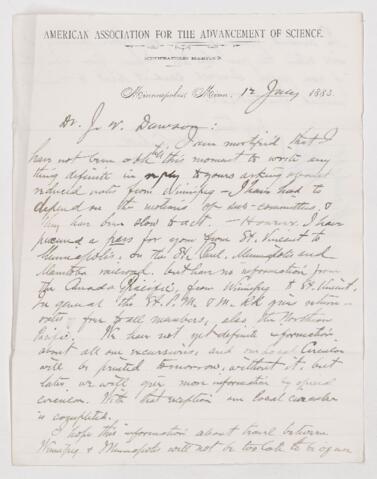 AMERICAN ASSOCIATION FOR THE ADVANCEMENT OF SCIENCE.
MINNEAPOLIS MEETING.
Minneapolis, Minn. 12 July 1883.
Dr. J. W. Dawson:
I am mortified that I
have not been able till this moment to write any
thing definite in reply to yours asking about
reduced rates from Winnipeg. I have had to
depend on the motions of sub-committees, &
they have been slow to act. However, I have
procured a pass for you from St. Vincent to
Minneapolis, on the St. Paul, Minneapolis and
Manitoba railroad, but have no information from
the Canada Pacific, from Winnipeg to St. Vincent.
In general the St. P. M. & M. RR give return
rates free for all members, also the Northern
Pacific. We have not yet definite information
about all our excursions, and our local Circular
will be printed tomorrow, without it, but
later, we will give more information by special
circular. With that exception our local circular
is completed.
I hope this information about travel between
Winnipeg & Minneapolis will not be too late to be of use